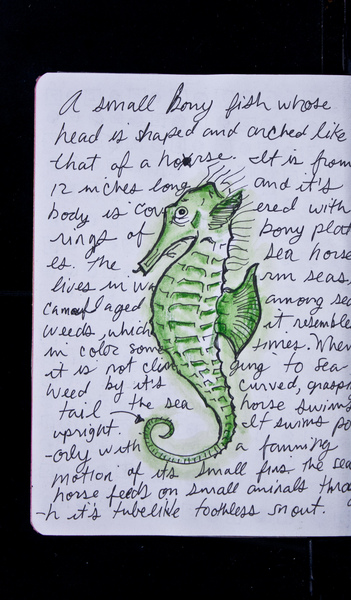 A small Bony fish whose
head is shaped and arched like
that of a horse. It is from
12 inches long and it's
body is cov ered with
rings of bony plat
es. The sea horse
lives in wa rm seas,
camouflaged among sea
weeds, which it resemble
in color some times. When
it is not clin ging to sea
weed by it's curved, grasp
tail the sea horse swims
upright. It swims po
-orly with a fanning
motion of its small fins. The sea
horse feeds on small animals thro
-h it's tubelike toothless snout.